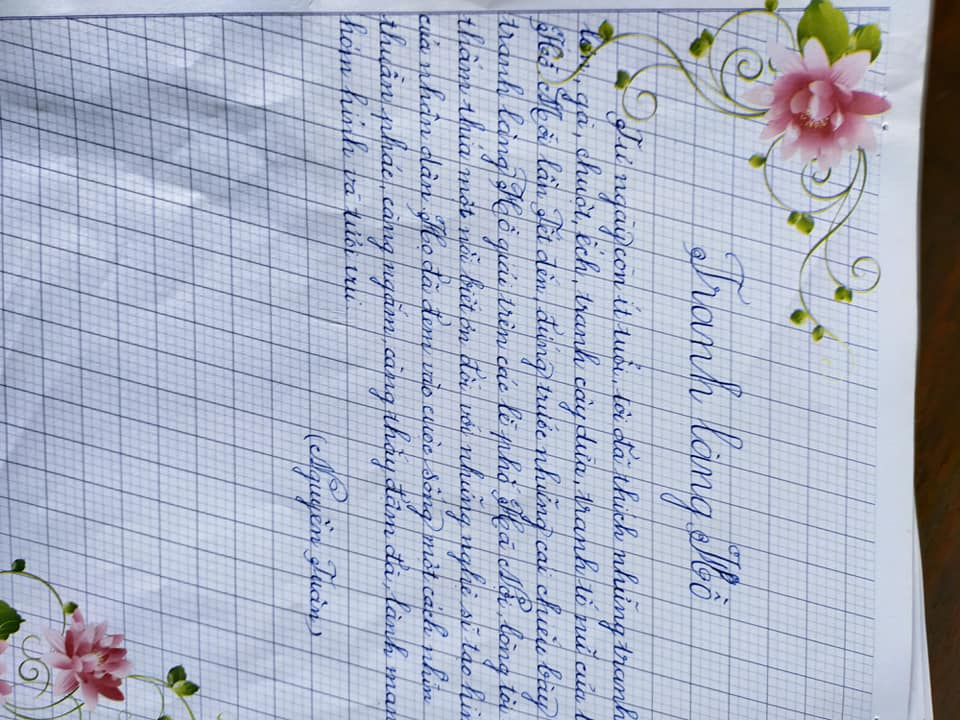 Tranh làng Hồ
Từ ngày còn ít tuổi, tôi đã thích những tranh
lợn, gà, chuột, ếch, tranh cây dừa, tranh tố nữ của
Hồ. Mỗi lần Tết đến, đứng trước những cái chiếu bày
tranh làng Hồ giải trên các lề phố Hà Nội, lòng tôi
thấm thía một nỗi biết ơn đối với những nghệ sĩ tạo
của nhân dân. Họ đã đem vào cuộc sống một cách nhìn
thuần phác, càng ngắm càng thấy đậm đà, lành
hóm hỉnh và tươi vui.
(Nguyễn Tuân)